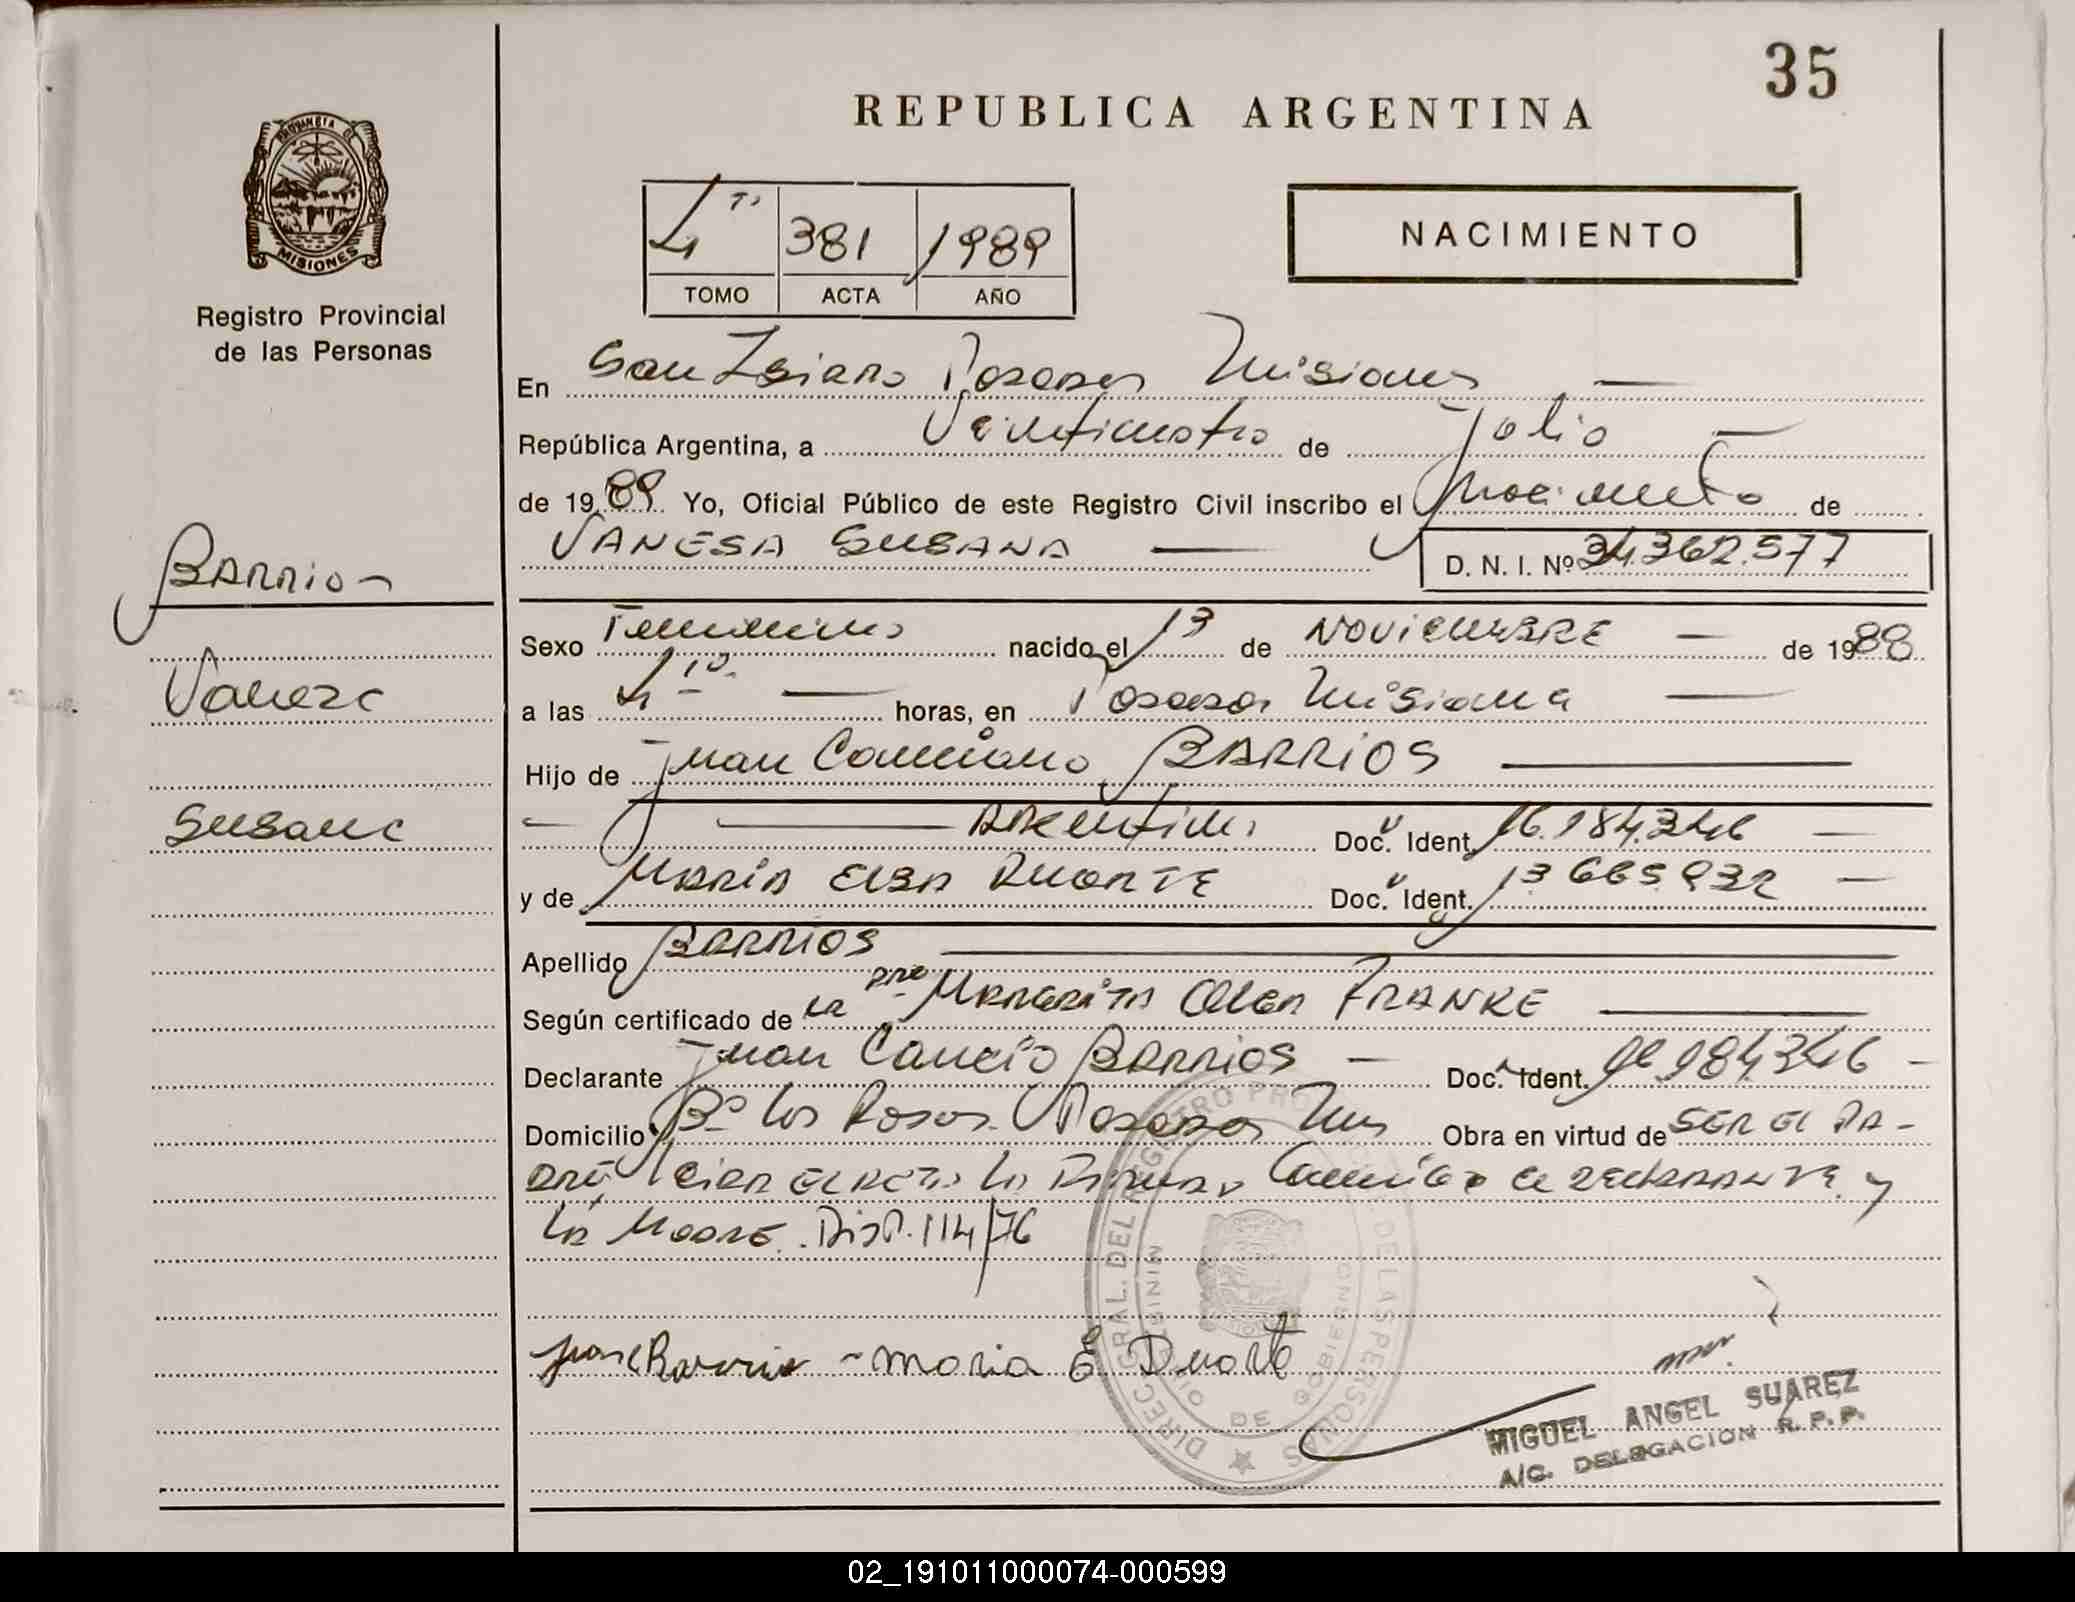 35
REPUBLICA ARGENTINA
PROVINCIA DE
MISIONES
Registro Provincial
de las Personas
4to 381 1989
TOMO ACTA AÑO
NACIMIENTO
En San Isidro Posadas Misiones
República Argentina, a Veinticuatro de Julio
de 1989 Yo, Oficial Público de este Registro Civil inscribo el Nacimiento de
VANESA SUSANA
D. N. I. Nº 34.362.577
BARRIOS
Vanesa
Susana
Sexo Femenino nacido el 13 de NOVIEMBRE de 1988
a las 4 10 horas, en Posadas Misiones
Hijo de Juan BARRIOS
ARGENTINO Doc. Ident. 16.184.346
y de MARIA ELBA DUARTE Doc. Ident. 13.665.932
Apellido BARRIOS
Según certificado de La MARGARITA OLGA FRANKE
Declarante Juan Cancio BARRIOS Doc. Ident. 16.184.346
Domicilio Bº Las Rosas Posadas Mns Obra en virtud de SER EL PA-
DRE el DECLARANTE y
LA MADRE. Disp. 114/76
Juan C Barrios - Maria E Duarte
DIREC. GRAL. DEL REGISTRO PROVINCIAL DE LAS PERSONAS
MINISTERIO DE GOBIERNO
MIGUEL ANGEL SUAREZ
A/C. DELEGACION R. P. P.
02_191011000074-000599